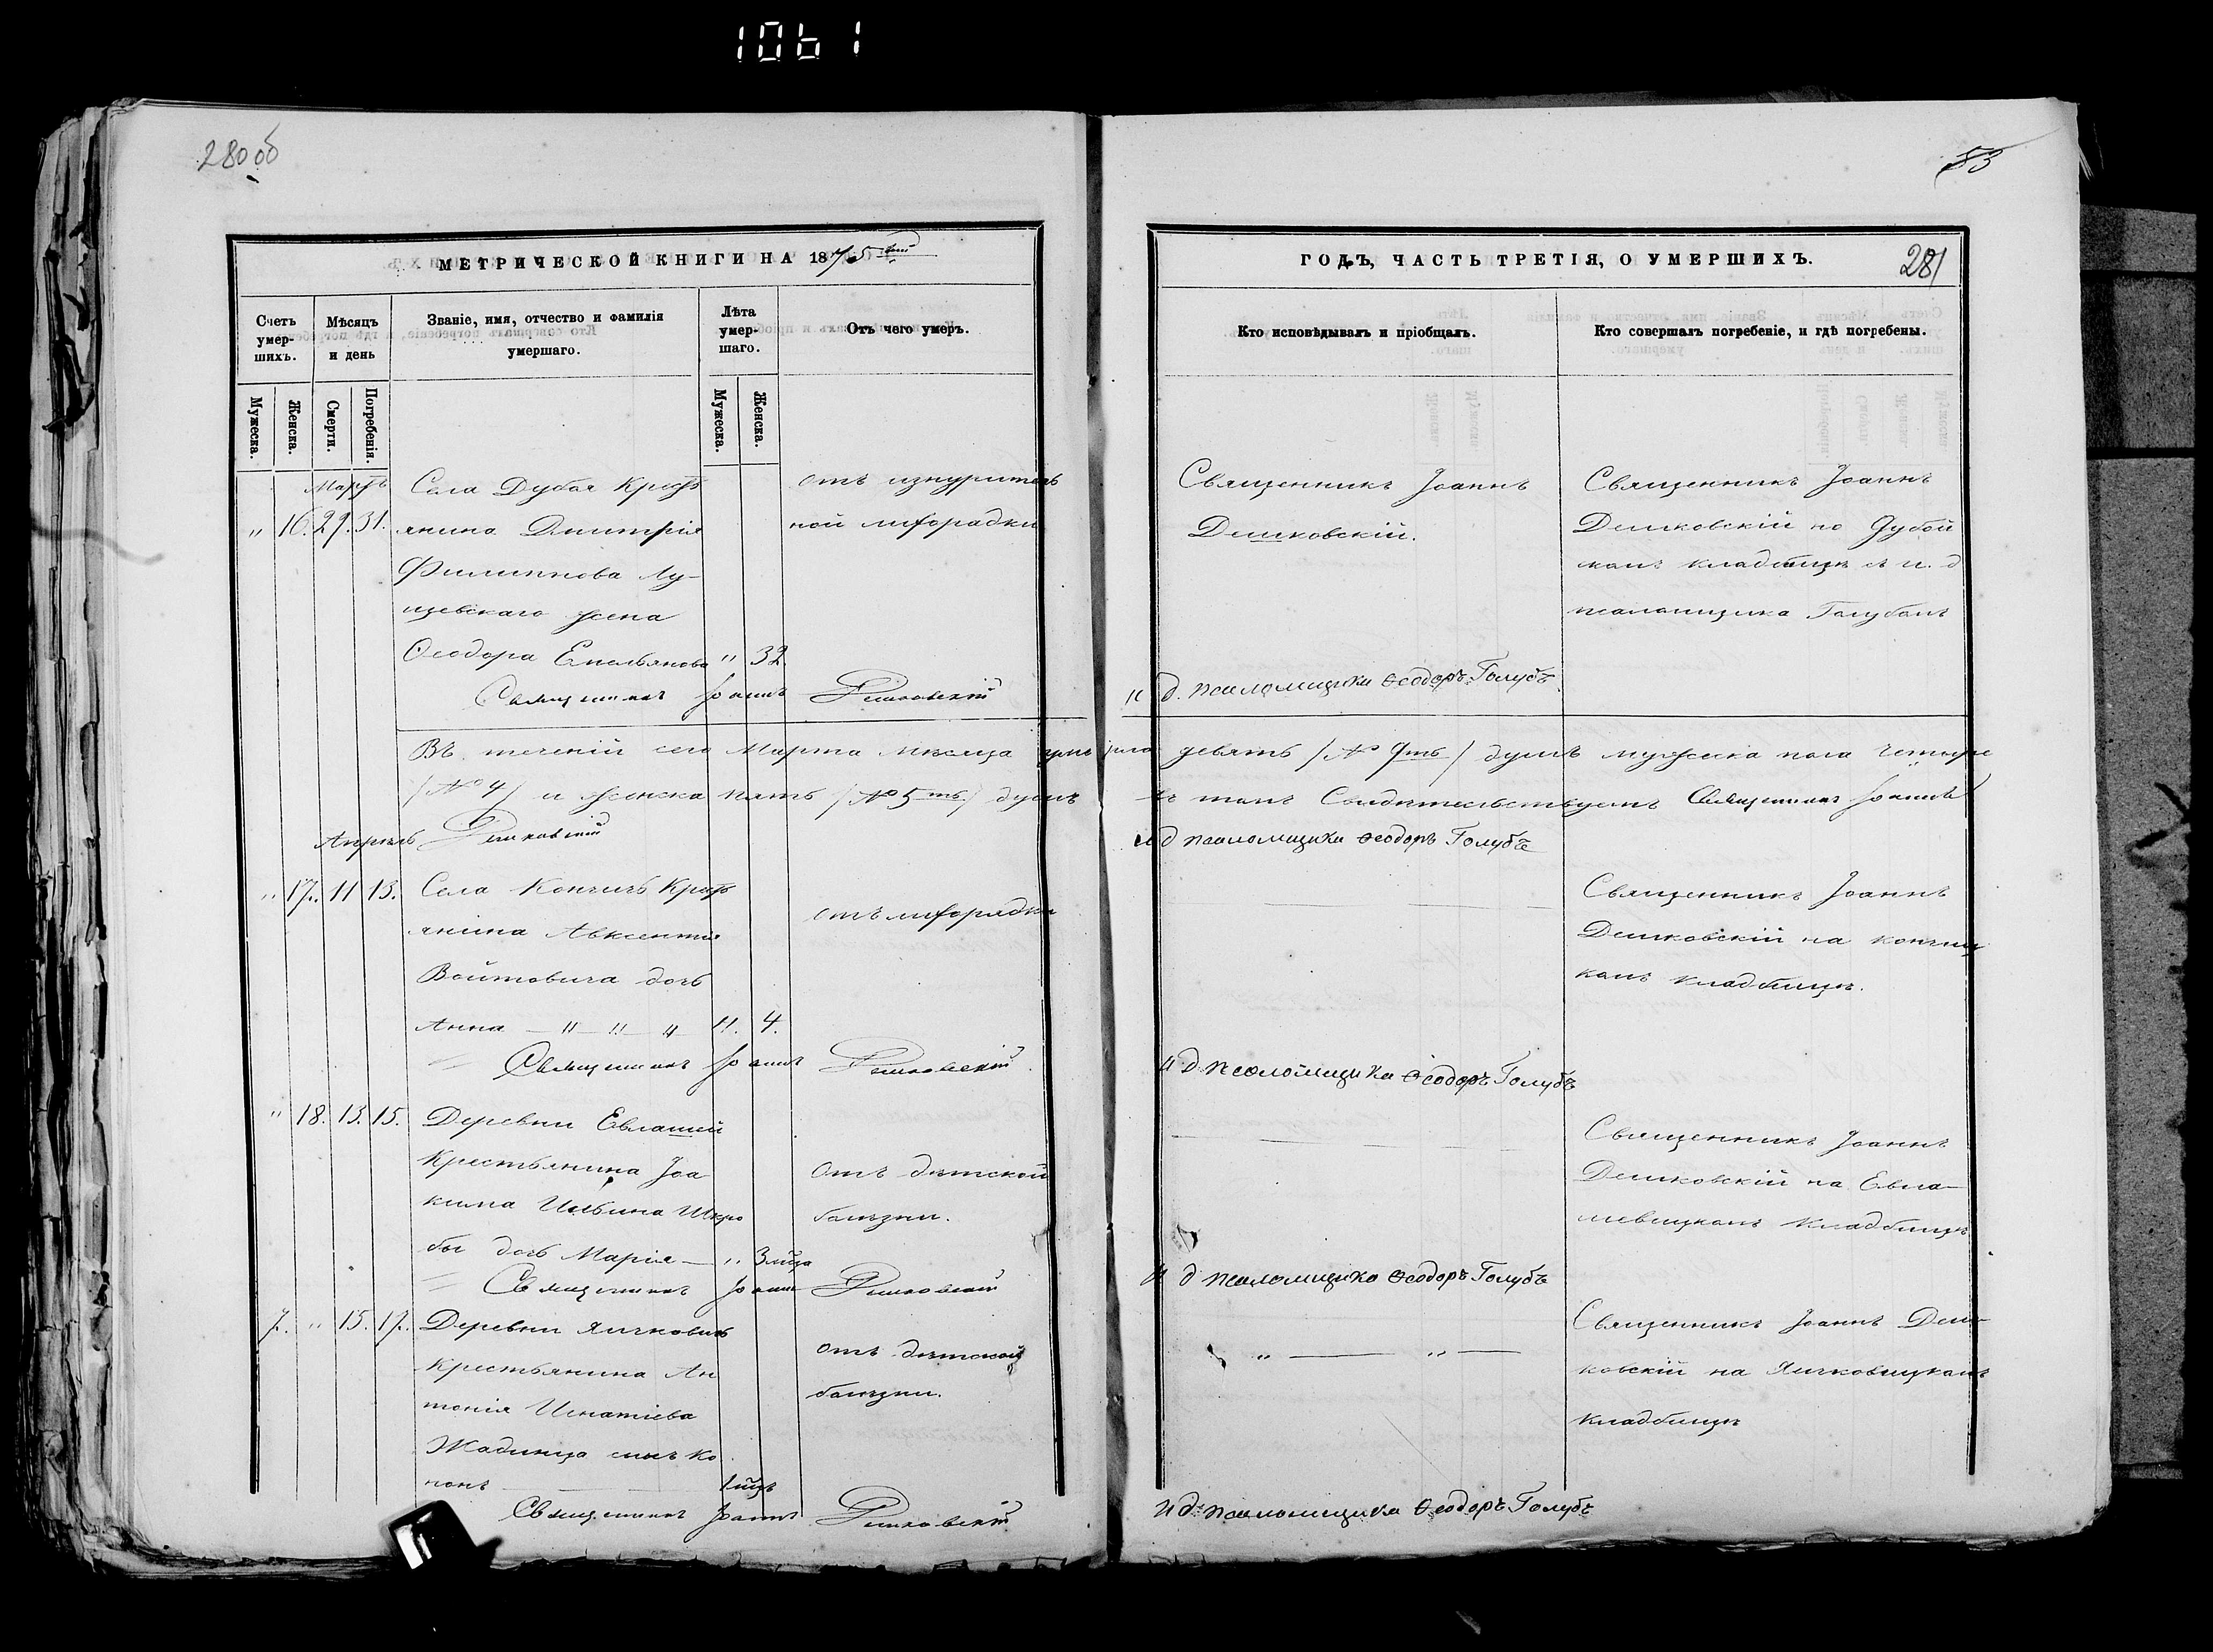 1061
280 об
53
МЕТРИЧЕСКОЙ КНИГИ НА 1875
ГОДЪ, ЧАСТЬ ТРЕТІЯ, О УМЕРШИХЪ.
281
Счетъ умер-шихъ.
Мѣсяцъ и день
Званіе, имя, отчество и фамилія умершаго.
Лѣта умер-шаго.
Отъ чего умеръ.
Кто исповѣдывалъ и пріобщалъ.
Кто совершалъ погребеніе, и гдѣ погребены.
Мужеска.
Женска.
Смерти.
Погребенія.
Мужеска.
Женска.
Мартъ
" 16. 29. 31.
Села Дубоя Крест
янина Дмитрія
Филиппова Лу-
щевскаго жена
Ѳеодора Емельянова " 32
отъ изнуритель
ной лихорадки
Священникъ Іоаннъ
Демковскій.
Священникъ Іоаннъ
Демковскій на Дубой
комъ кладбищѣ съ и. д
псаломщика Голубомъ
Священникъ Іоаннъ Демковскій
и д. псаломщика Ѳеодоръ Голубъ
Въ теченіи сего Марта мѣсяца умерло девять /№ 9ть/ душъ мужеска пола четыре
/№ 4/ и женска пять /№ 5ть/ душъ въ томъ Свидѣтельствуемъ Священникъ Іоаннъ
Демковскій
и д псаломщика Ѳеодоръ Голубъ
Апрѣль
" 17. 11 13.
Села Кончичъ Крест
янина Авксентія
Войтовича дочь
Анна — " — " — " ". 4.
отъ лихорадки
Священникъ Іоаннъ
Демковскій на Кончиц
комъ кладбищѣ.
Священникъ Іоаннъ Демковскій
и д псаломщика Ѳеодоръ Голубъ
" 18. 13. 15.
Деревни Евлашей
Крестьянина Іоа
кима Ильина Шкро
бы дочь Марія — " 3 мца
отъ дѣтской
болѣзни.
Священникъ Іоаннъ
Демковскій на Евла-
шевицкомъ Кладбищѣ
Священникъ Іоаннъ Демковскій
и д псаломщика Ѳеодоръ Голубъ
7. " 15. 17.
Деревни Ячковичъ
Крестьянина Ан
тонія Игнатіева
Жадинца сынъ Ко
нонъ
отъ дѣтской
болѣзни.
" — " —
Священникъ Іоаннъ Дем-
ковскій на Ячковицкомъ
кладбищѣ
Священникъ Іоаннъ Демковскій
и д. псаломщика Ѳеодоръ Голубъ